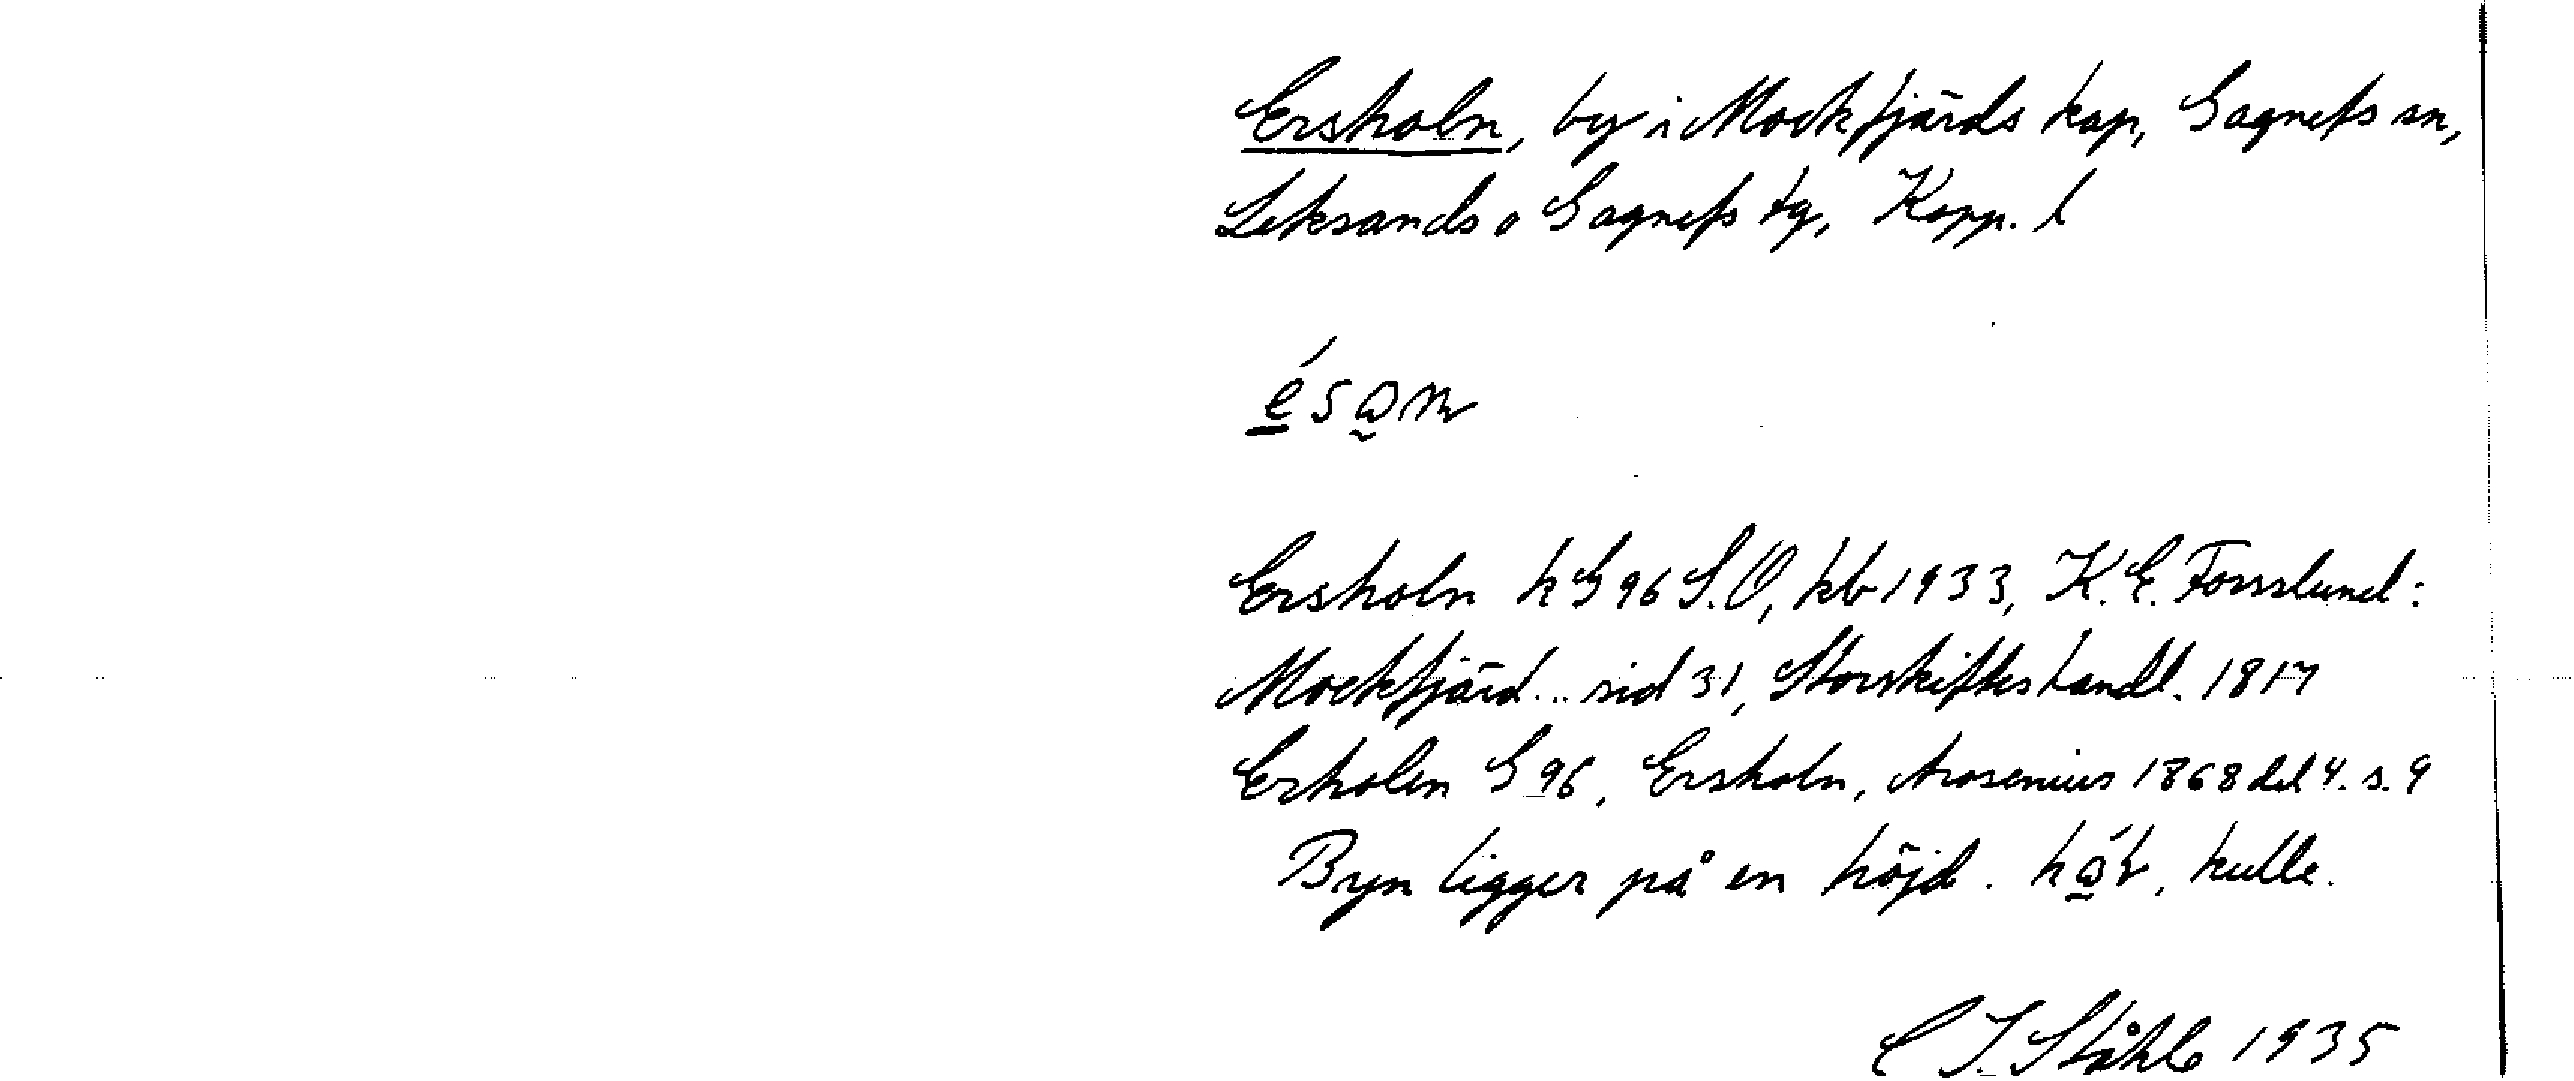 Ersholn, by i Mockfjärds kap, Gagnefs sn,
Leksands o Gagnefs tg, Kopp. l
Ersholn k G 96 S.O, kb 1933, K. E. Forsslund:
Mockfjärd... sid 31, Storskifteshandl. 1817
Erholen G 96, Ersholn, Arosenius 1868 del 4. s. 9
Byn ligger på en höjd. kulle.
C I. Ståhle 1935